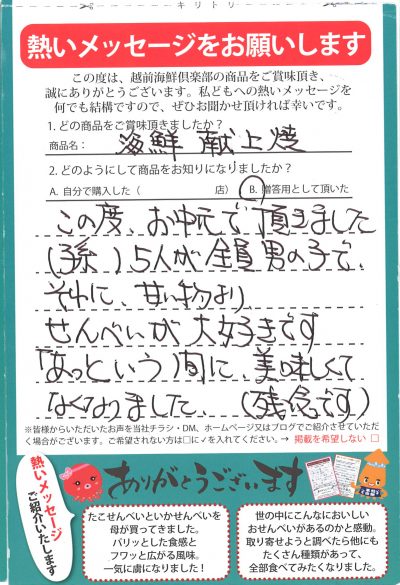 キリトリ
熱いメッセージをお願いします
この度は、越前海鮮倶楽部の商品をご賞味頂き、
誠にありがとうございます。私どもへの熱いメッセージを
何でも結構ですので、ぜひお聞かせ頂ければ幸いです。
1. どの商品をご賞味頂きましたか？
商品名： 海鮮 献上焼
2. どのようにして商品をお知りになりましたか？
A. 自分で購入した（ 店） B. 贈答用として頂いた
この度、お中元で頂きました
(孫)5人が全員男の子で、
それに、甘い物より
せんべいが大好きです
「あっという」間に、美味しくて
なくなりました、(残念です)
※皆様からいただいたお声を当社チラシ・DM、ホームページ又はブログでご紹介させていただ
く場合がございます。ご希望されない方は□に✓を入れてください。→ 掲載を希望しない □
熱いメッセージ
ご紹介いたします
ありがとうございます
たこせんべいといかせんべいを
母が買ってきました。
パリッとした食感と
フワッと広がる風味。
一気に虜になりました！
世の中にこんなにおいしい
おせんべいがあるのかと感動。
取り寄せようと調べたら他にも
たくさん種類があって、
全部食べてみたくなりました。